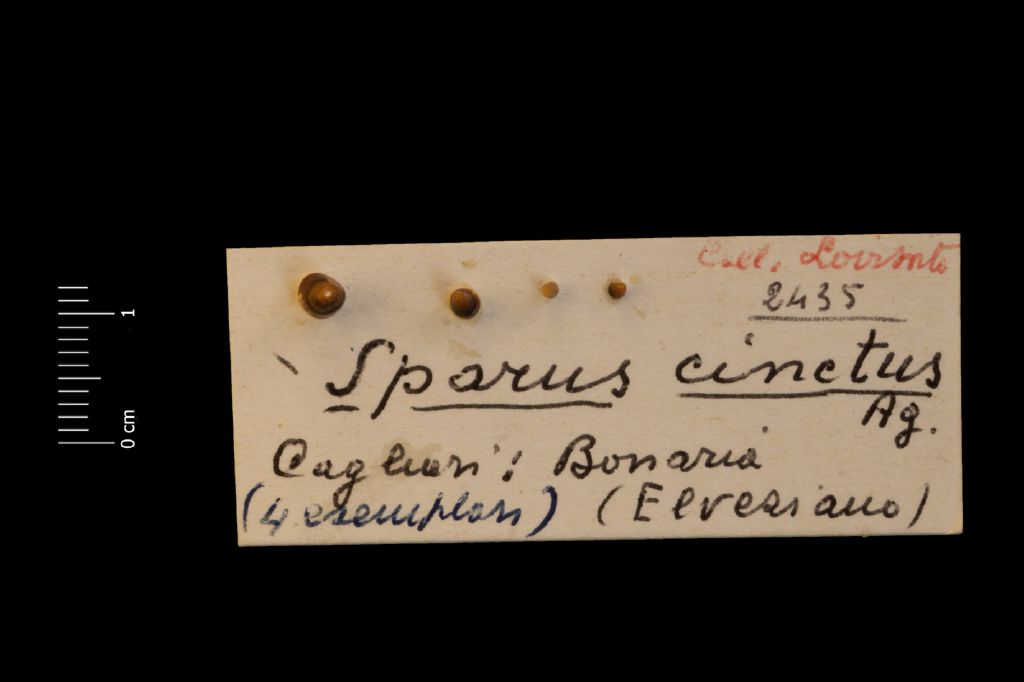 Col. Lovisato
2435
Sparus cinctus
Ag.
Cagliari: Bonaria
(4 esemplari) (Elveziano)
1
0 cm